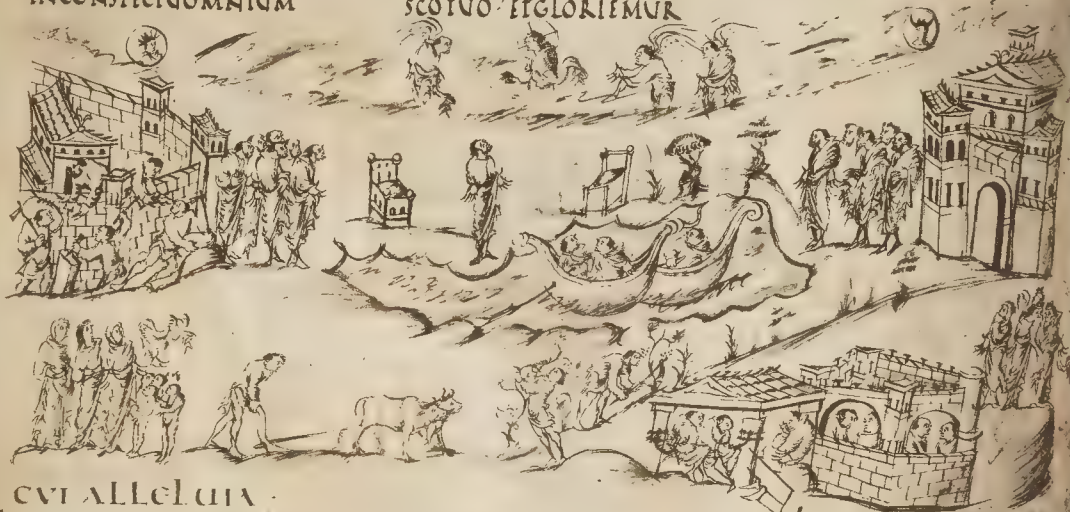 INCONSPECTUOMNIUM SCOTUO·ETGLORIEMUR
CVI ALLELUIA·